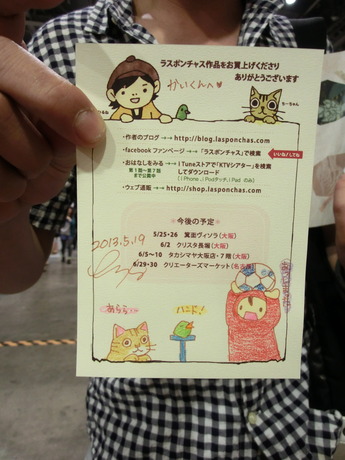 ラスポンチャス作品をお買上げくださり
ありがとうございます
かいくんへ♡
ちーちゃん
・作者のブログ →→ http://blog.lasponchas.com
・facebook ファンページ →「ラスポンチャス」で検索
いいね!してね
・おはなしをみる →→ i Tuneストアで「KTVシアター」を検索
第1期〜第7期
まで公開中
してダウンロード
(i Phone、i Podタッチ、i Pad のみ)
・ウェブ通販 →→ http://shop.lasponchas.com
今後の予定
2013.5.19
5/25・26 箕面ヴィソラ(大阪)
6/2 クリスタ長堀(大阪)
6/5〜10 タカシマヤ大阪店・7階(大阪)
6/29・30 クリエーターズマーケット(名古屋)
あらら
ハンド!